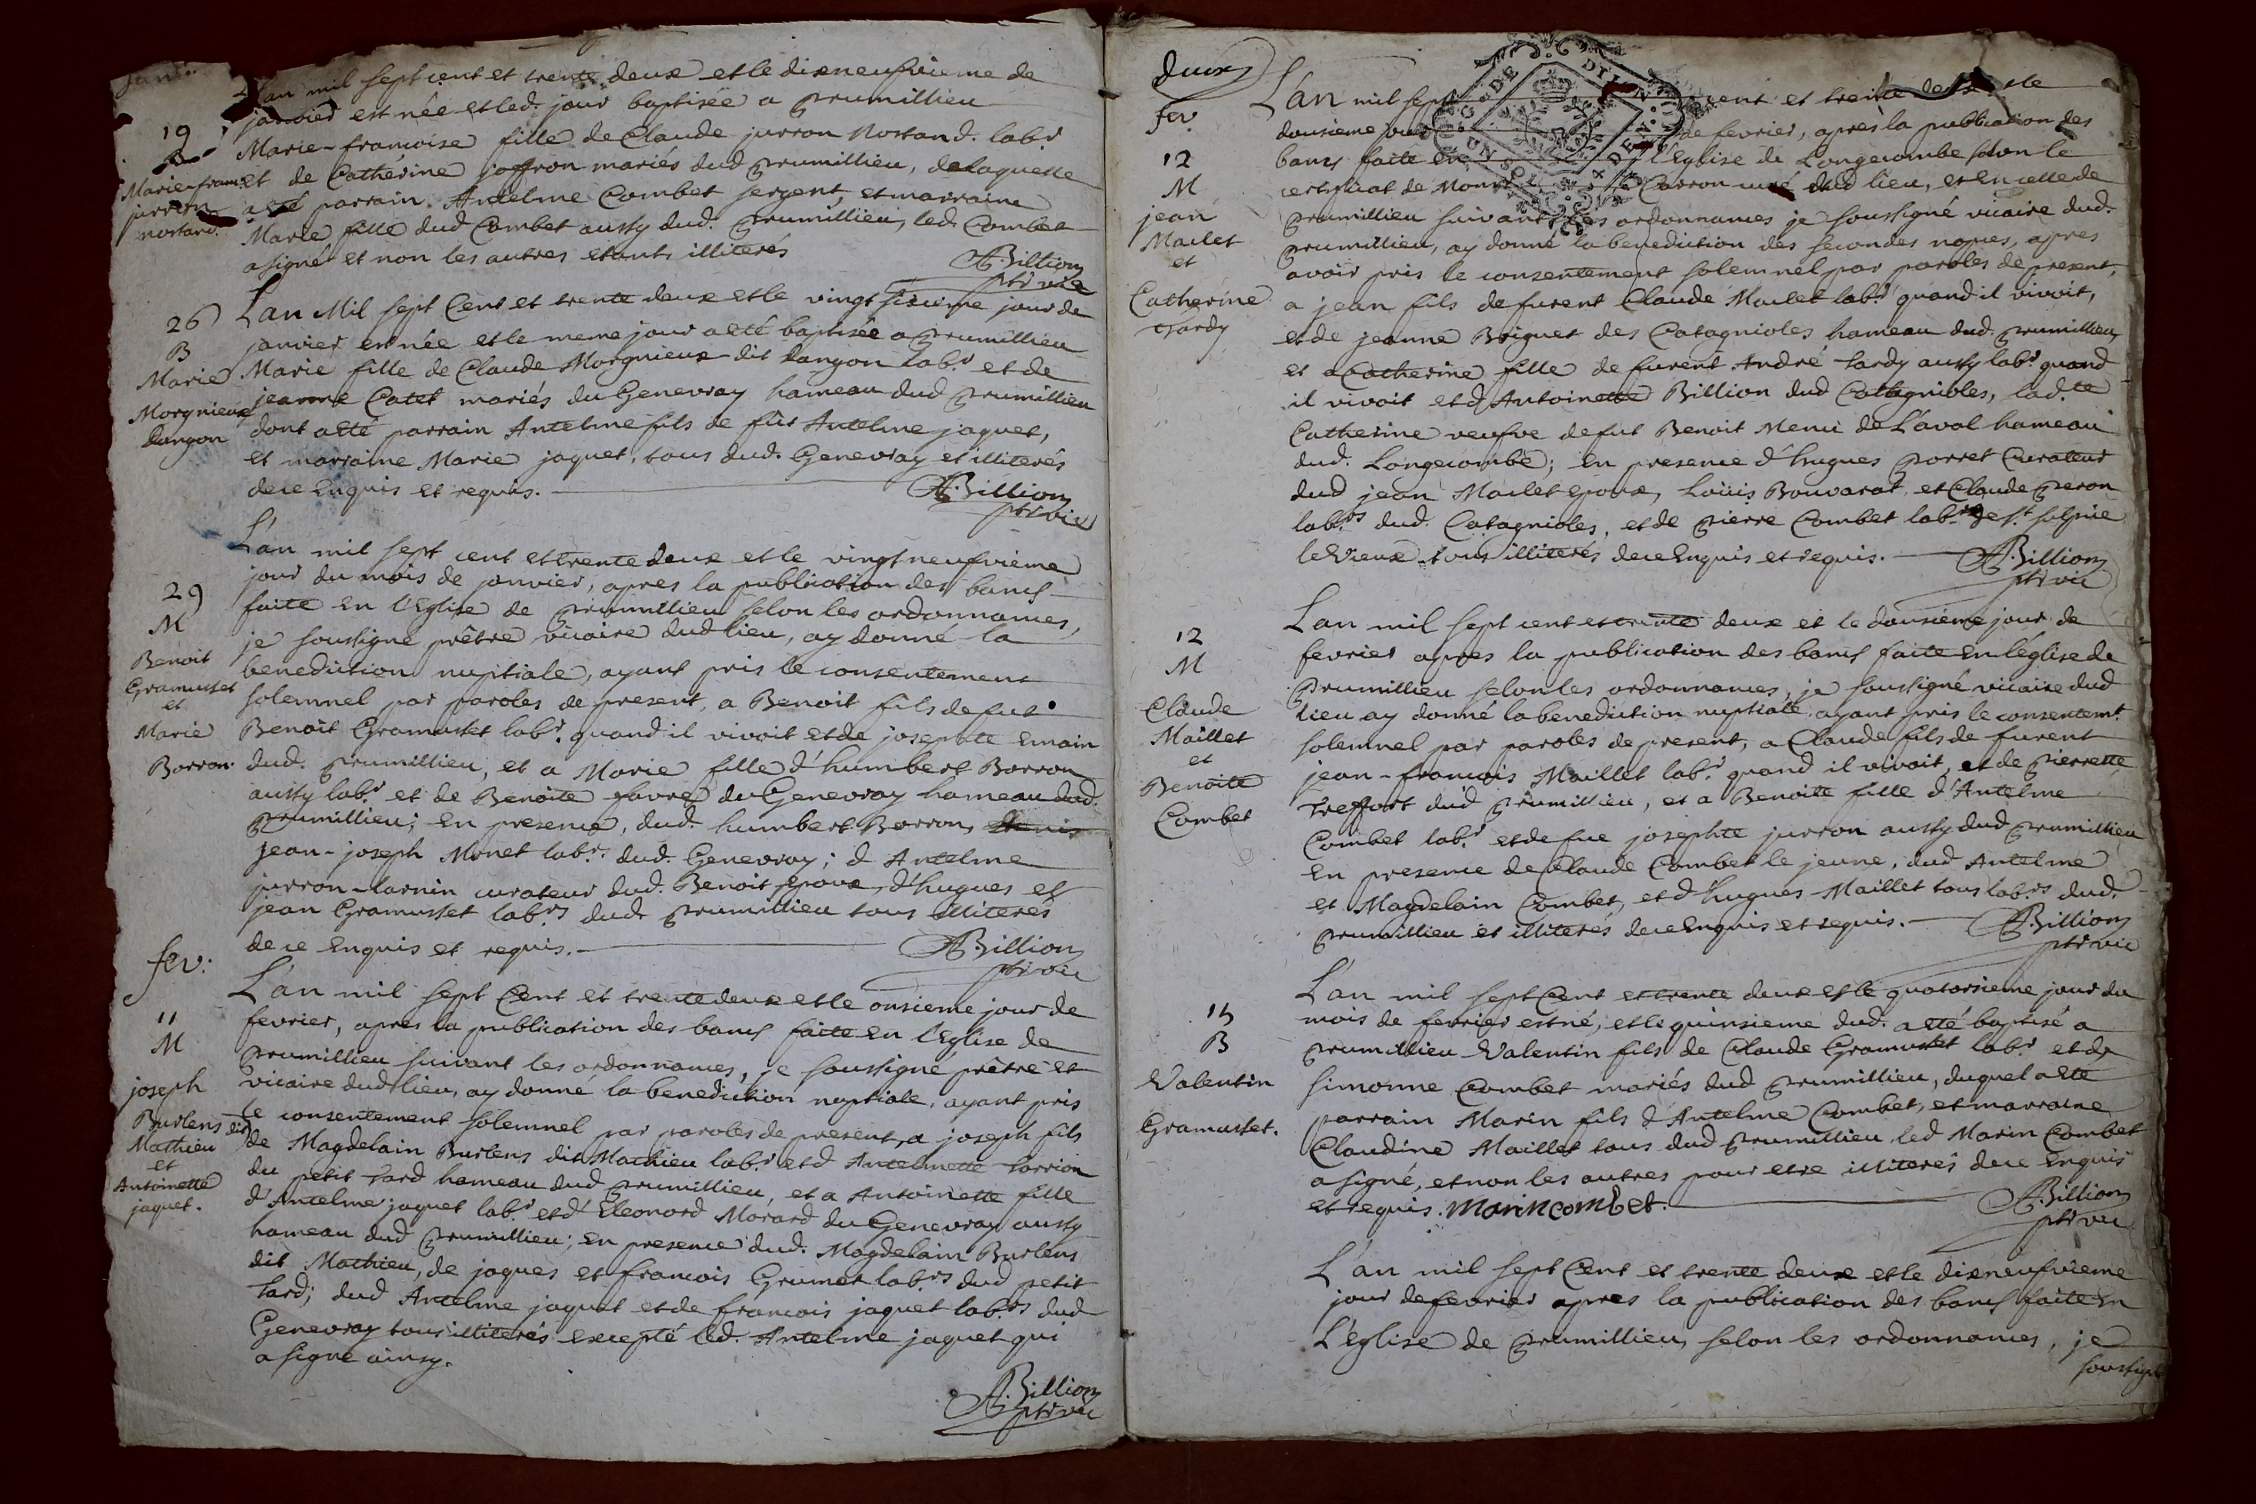 janv.
L'an mil sept cent et trente deux et le dixneufvieme de
janvier est née et led. jour baptisée a prumillieu
Marie-francoise fille de Claude jurron Nostand. lab.r
et de Cathérine joffron mariés dud prumillieu, de laquelle
a eté parrain Antelme Combet sergent, et marraine
Marie fille dud Combet aussy dud. prumillieu, led. Combet
a signé et non les autres etants illiterés
A. Billion
ptr vic
19
B
Marie-franc.
jurron
nostand.
L'an Mil sept Cent et trente deux et le vingt sixieme jour de
janvier est née et le meme jour a eté baptisée a prumillieu
Marie fille de Claude Morgnieux dit dangon lab.r et de
jeanne Catet mariés du Genevray hameau dud prumillieu
dont a eté parrain Antelme fils de fût Antelme jaquet,
et marraine Marie jaquet, tous dud. Genevray et illiterés
de ce Enquis et requis.
A. Billion
ptr vic
26
B
Marie
Morgnieux
dangon
L'an mil sept cent et trente deux et le vingt neufvieme
jour du mois de janvier, apres la publication des bancs
faite En l'Eglise de prumillieu selon les ordonnances,
je soussigné prêtre vicaire dud lieu, ay donné la
benediction nuptiale, ayant pris le consentement
solemnel par paroles de present, a Benoit fils de fut
Benoit Gramusset lab.r quand il vivoit et de josephte Emain
dud. prumillieu, et a Marie fille d'humbert Borron
aussy lab.r et de Benoite favre du Genevray hameau dud.
prumillieu; En presence, dud. humbert Borron,
jean-joseph Monet lab.r dud. Genevray; d'Antelme
jurron-larnin curateur dud. Benoit epoux, d'hugues et
jean Gramusset lab.rs dud. prumillieu tous illiterés
de ce Enquis et requis.
A Billion
ptr vic
29
M
Benoit
Gramusset
et
Marie
Borron.
fev:
L'an mil sept Cent et trente deux et le onsieme jour de
fevrier, apres la publication des bancs faite En l'Eglise de
prumillieu suivant les ordonnances, je soussigné prêtre et
vicaire dud lieu, ay donné la benediction nuptiale, ayant pris
le consentement solemnel par paroles de present, a joseph fils
de Magdelain Burlens dit Mathieu lab.r et d'Antelmette
du petit Tard hameau dud prumillieu, et a Antoinette fille
d'Antelme jaquet lab.r et d'Eleonord Morard du Genevray aussy
hameau dud prumillieu; En presence dud. Magdelain Burlens
dit Mathieu, de jaques et francois Grumet lab.rs dud petit
Tard; dud Antelme jaquet et de francois jaquet lab.rs dud
Genevray tous illiterés excepté led. Antelme jaquet qui
a signé ainsy.
A. Billion
ptr vic
11
M
joseph
Burlens dit
Mathieu
et
Antoinette
jaquet.
deux
fev.
L'an mil sept cent et trente deux et le
dousieme jour de fevrier, après la publication des
bancs faite En l'Eglise de Longecombe selon le
certificat de Mons.r Carron curé dud lieu, et En celle de
prumillieu suivant les ordonnances je soussigné vicaire dud.
prumillieu, ay donné la benediction des secondes nopces, apres
avoir pris le consentement solemnel par paroles de present,
a jean fils de furent Claude Maclet lab.r quand il vivoit,
et de jeanne Briguet des Catagnioles hameau dud. prumillieu
et a Catherine fille de furent André tardy aussy lab.r quand
il vivoit et d'Antoinette Billion dud Catagnioles, lad.te
Catherine veufve de fut Benoit Menu de L'aval hameau
dud. Longecombe; En presence d'hugues porret Curateur
dud jean Maclet epoux, Loüis Bouvarat et Claude peron
lab.rs dud. Catagnioles, et de pierre Combet lab.r de S.t sulpie
le Vieux tous illiterés de ce Enquis et requis.
A. Billion
ptr vic
12
M
jean
Maclet
et
Catherine
Tardy
L'an mil sept cent et trente deux et le dousiéme jour de
fevrier apres la publication des bancs faite En l'église de
prumillieu selon les ordonnances, je soussigné vicaire dud
lieu ay donné la benediction nuptiale, ayant pris le consentem.t
solemnel par paroles de present, a Claude fils de furent
jean-francois Maillet lab.r quand il vivoit, et de pierrette
Treffort dud prumillieu, et a Benoite fille d'Antelme
Combet lab.r et de fue josephte jurron aussy dud prumillieu
En presence de Claude Combet le jeune, dud Antelme
et Magdelain Combet, et d'hugues Maillet tous lab.rs dud.
prumillieu et illiterés de ce Enquis et requis.
A. Billion
ptr vic
12
M
Claude
Maillet
et
Benoite
Combet
L'an mil sept Cent et trente deux et le quatorsieme jour du
mois de fevrier est né, et le quinsieme dud. a eté baptisé a
prumillieu Valentin fils de Claude Gramusset lab.r et de
simonne Combet mariés dud prumillieu, duquel a eté
parrain Marin fils d'Antelme Combet, et marraine
Claudine Maillet tous dud prumillieu led Marin Combet
a signé, et non les autres pour etre illiterés de ce Enquis
et requis. marin combet.
A. Billion
ptr vic
15
B
Valentin
Gramusset.
L'an mil sept Cent et trente deux et le dixneufvieme
jour de fevrier apres la publication des bancs faite En
L'Eglise de prumillieu selon les ordonnances, je
soussigné